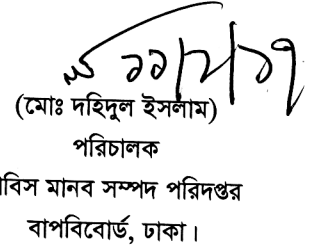 (মোঃ দহিদুল ইসলাম)
পরিচালক
বিস মানব সম্পদ পরিদপ্তর
বাপবিবোর্ড, ঢাকা।